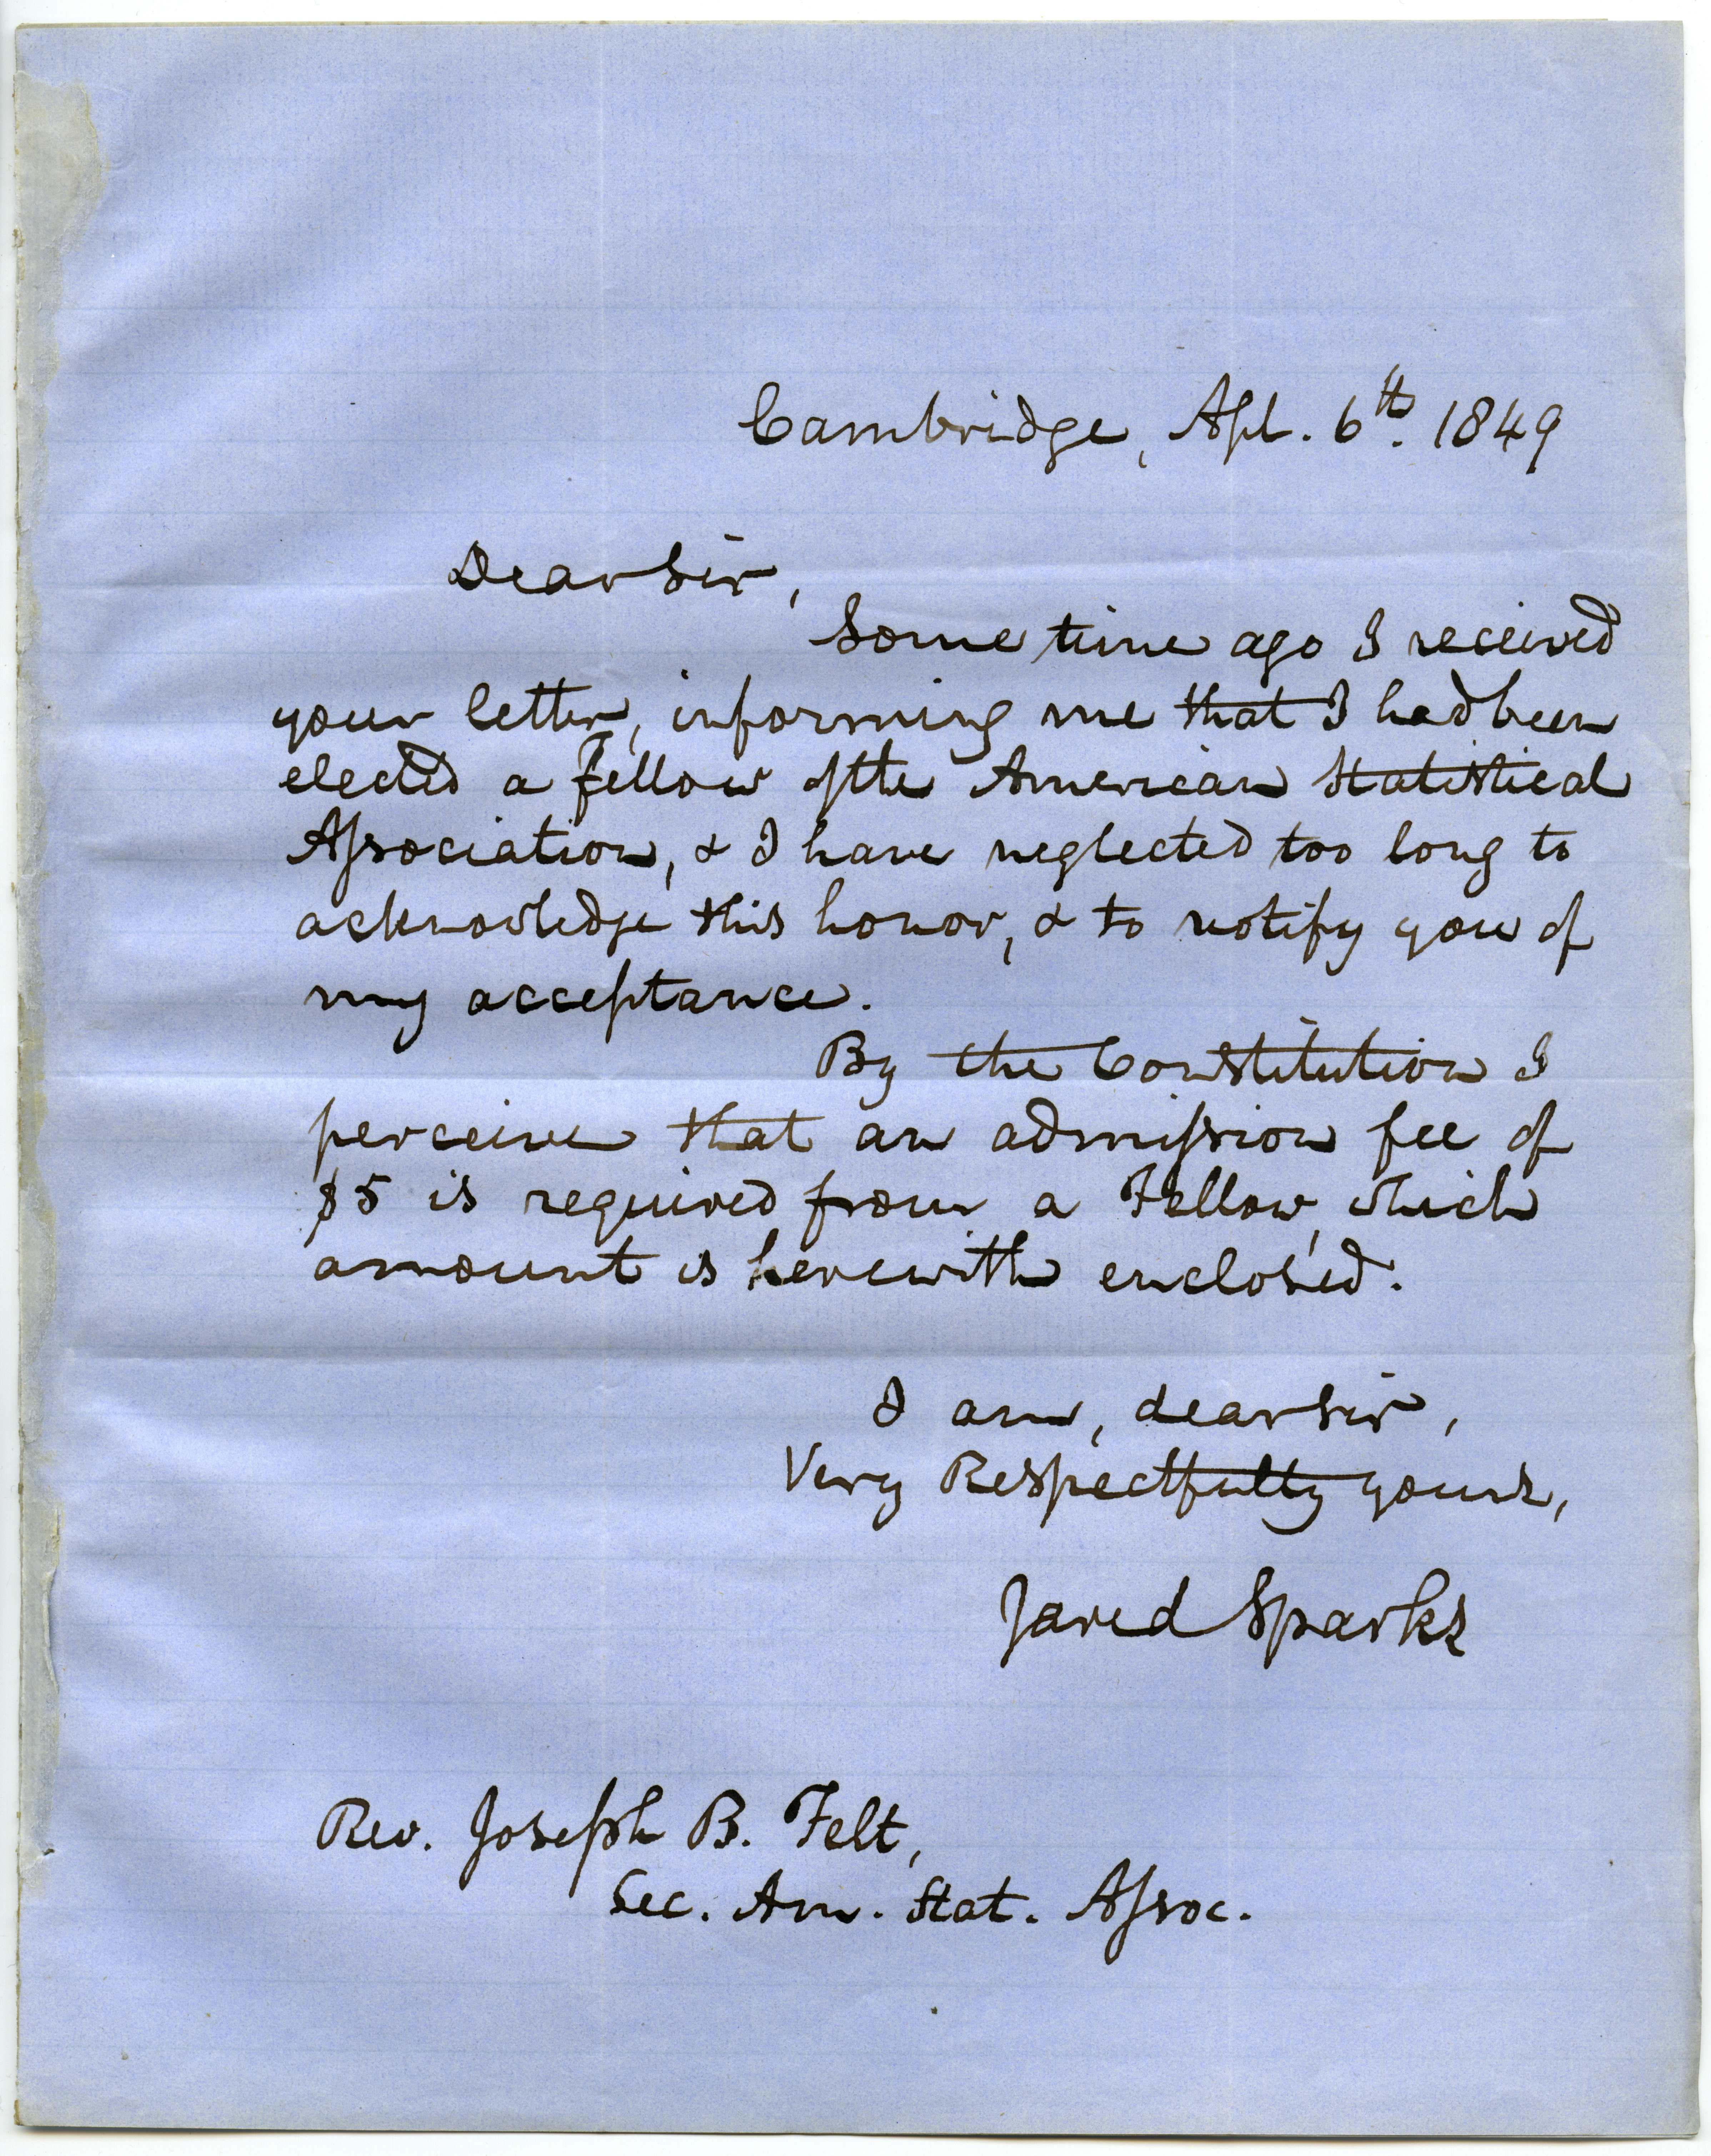 Cambridge, Apl. 6th. 1849
Dear Sir,
Some time ago I received
your letter, informing me that I had been
elected a Fellow of the American Statistical
Association, & I have neglected too long to
acknowledge this honor, & to notify you of
my acceptance.
By the Constitution I
perceive that an admission fee of
$5 is required from a Fellow, which
amount is herewith enclosed.
I am, dear sir,
Very Respectfully yours,
Jared Sparks
Rev. Joseph B. Felt,
Sec. Am. Stat. Assoc.